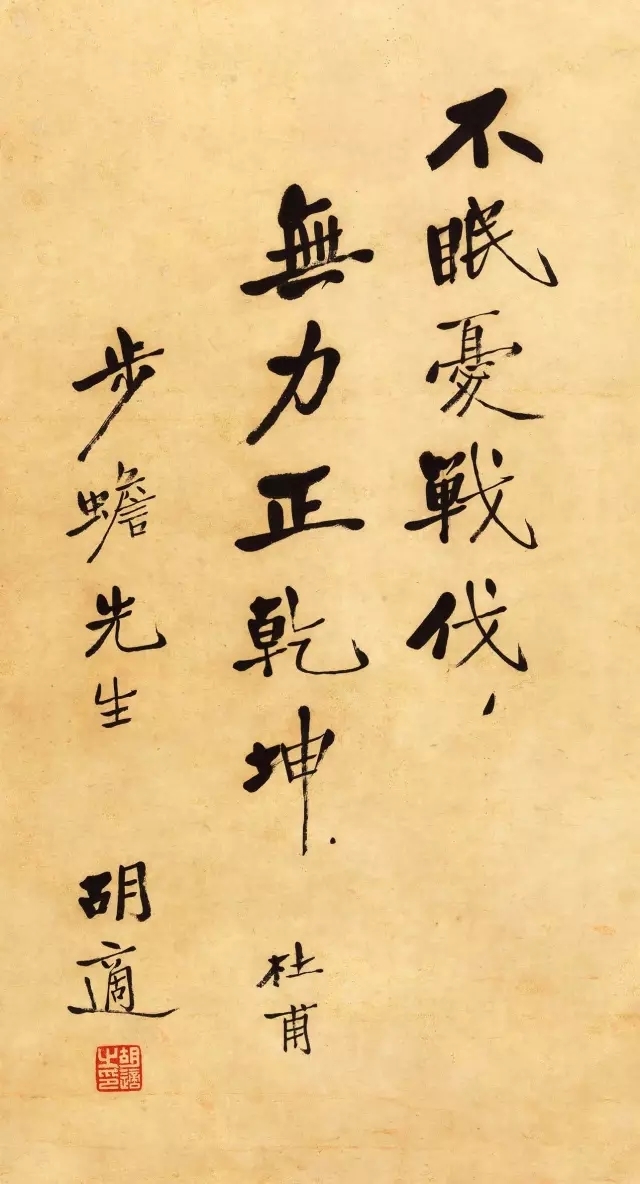 不眠憂戰伐，
無力正乾坤．
杜甫
步蟾先生
胡適
胡適之印